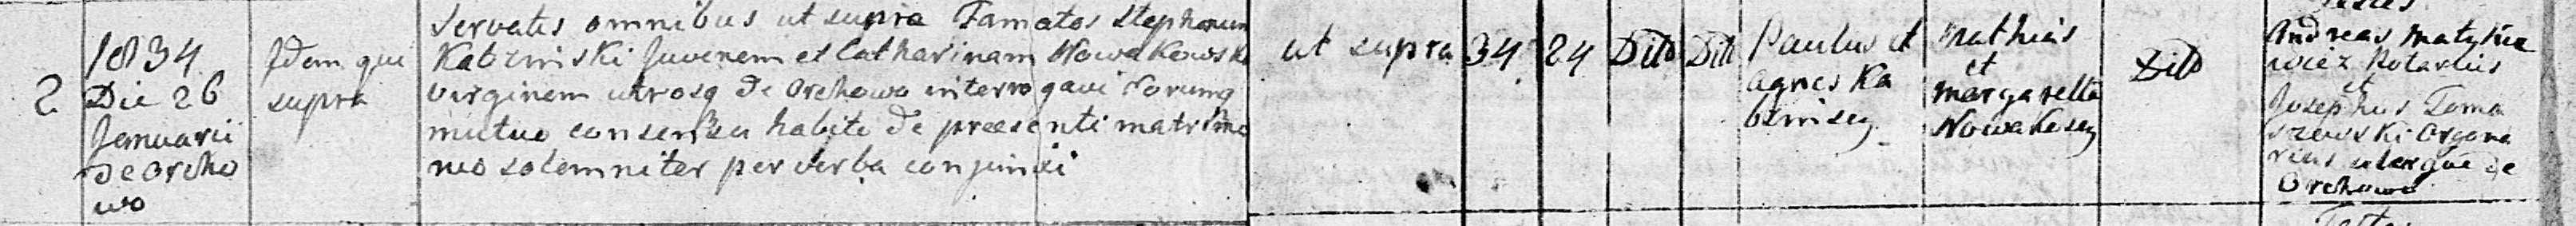 2
1834
Die 26
Januarii
De Orcho
wo
Idem qui
supra
Servatis omnibus ut supra Famatos Stephanum
Kabzinski Juvenem et Catharinam Nowakowsk
virginem utrosq de Orchowo interrogavi eorumq
mutuo consensu habito de praesenti matrimo
nio solemniter per verba conjunxi
ut supra
34
24
Ditto
Ditto
Paulus et
Agnes Ka
bzinscy
Mathias
et
Margaretta
Nowakoscy
Ditto
Testes
Andreas Matykie
wicz Notarius
et
Josephus Toma
szewski Organa
rius uterque de
Orchowo
Testes